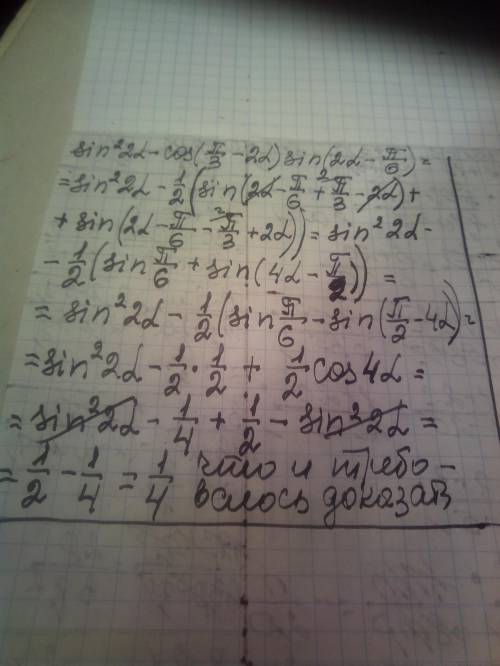 sin²2α - cos(π/3 - 2α) sin(2α - π/6) =
= sin²2α - 1/2 (sin(2α - π/6 + π/3 - 2α) +
+ sin(2α - π/6 - π/3 + 2α)) = sin²2α -
- 1/2 (sin π/6 + sin(4α - π/2)) =
= sin²2α - 1/2 (sin π/6 - sin(π/2 - 4α)) =
= sin²2α - 1/2 · 1/2 + 1/2 cos4α =
= sin²2α - 1/4 + 1/2 - sin²2α =
= 1/2 - 1/4 = 1/4 что и требо -
валось доказать